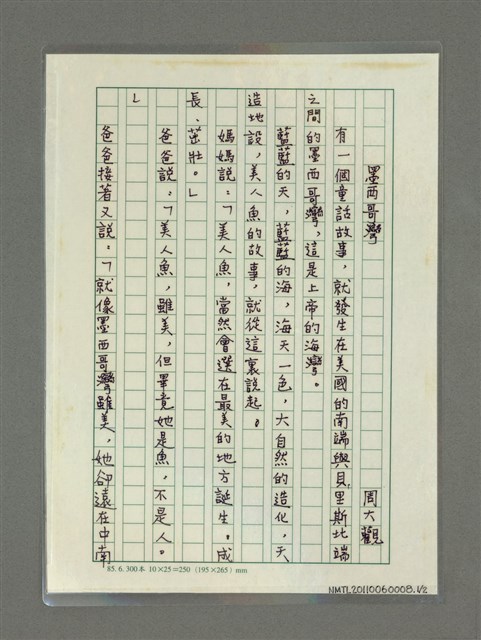 墨西哥灣
周大觀
有一個童話故事，就發生在美國的南端與貝里斯北端
之間的墨西哥灣，這是上帝的海灣。
藍藍的天，藍藍的海，海天一色，大自然的造化，天
造地設，美人魚的故事，就從這裏說起。
媽媽說：「美人魚，當然會選在最美的地方誕生。成
長、茁壯。」
爸爸說：「美人魚，雖美，但畢竟她是魚，不是人。
」
爸爸接著又說：「就像墨西哥灣雖美，她卻遠在中南
85.6.300本 10×25=250 (195×265) mm
NMTL20110060008.1/2